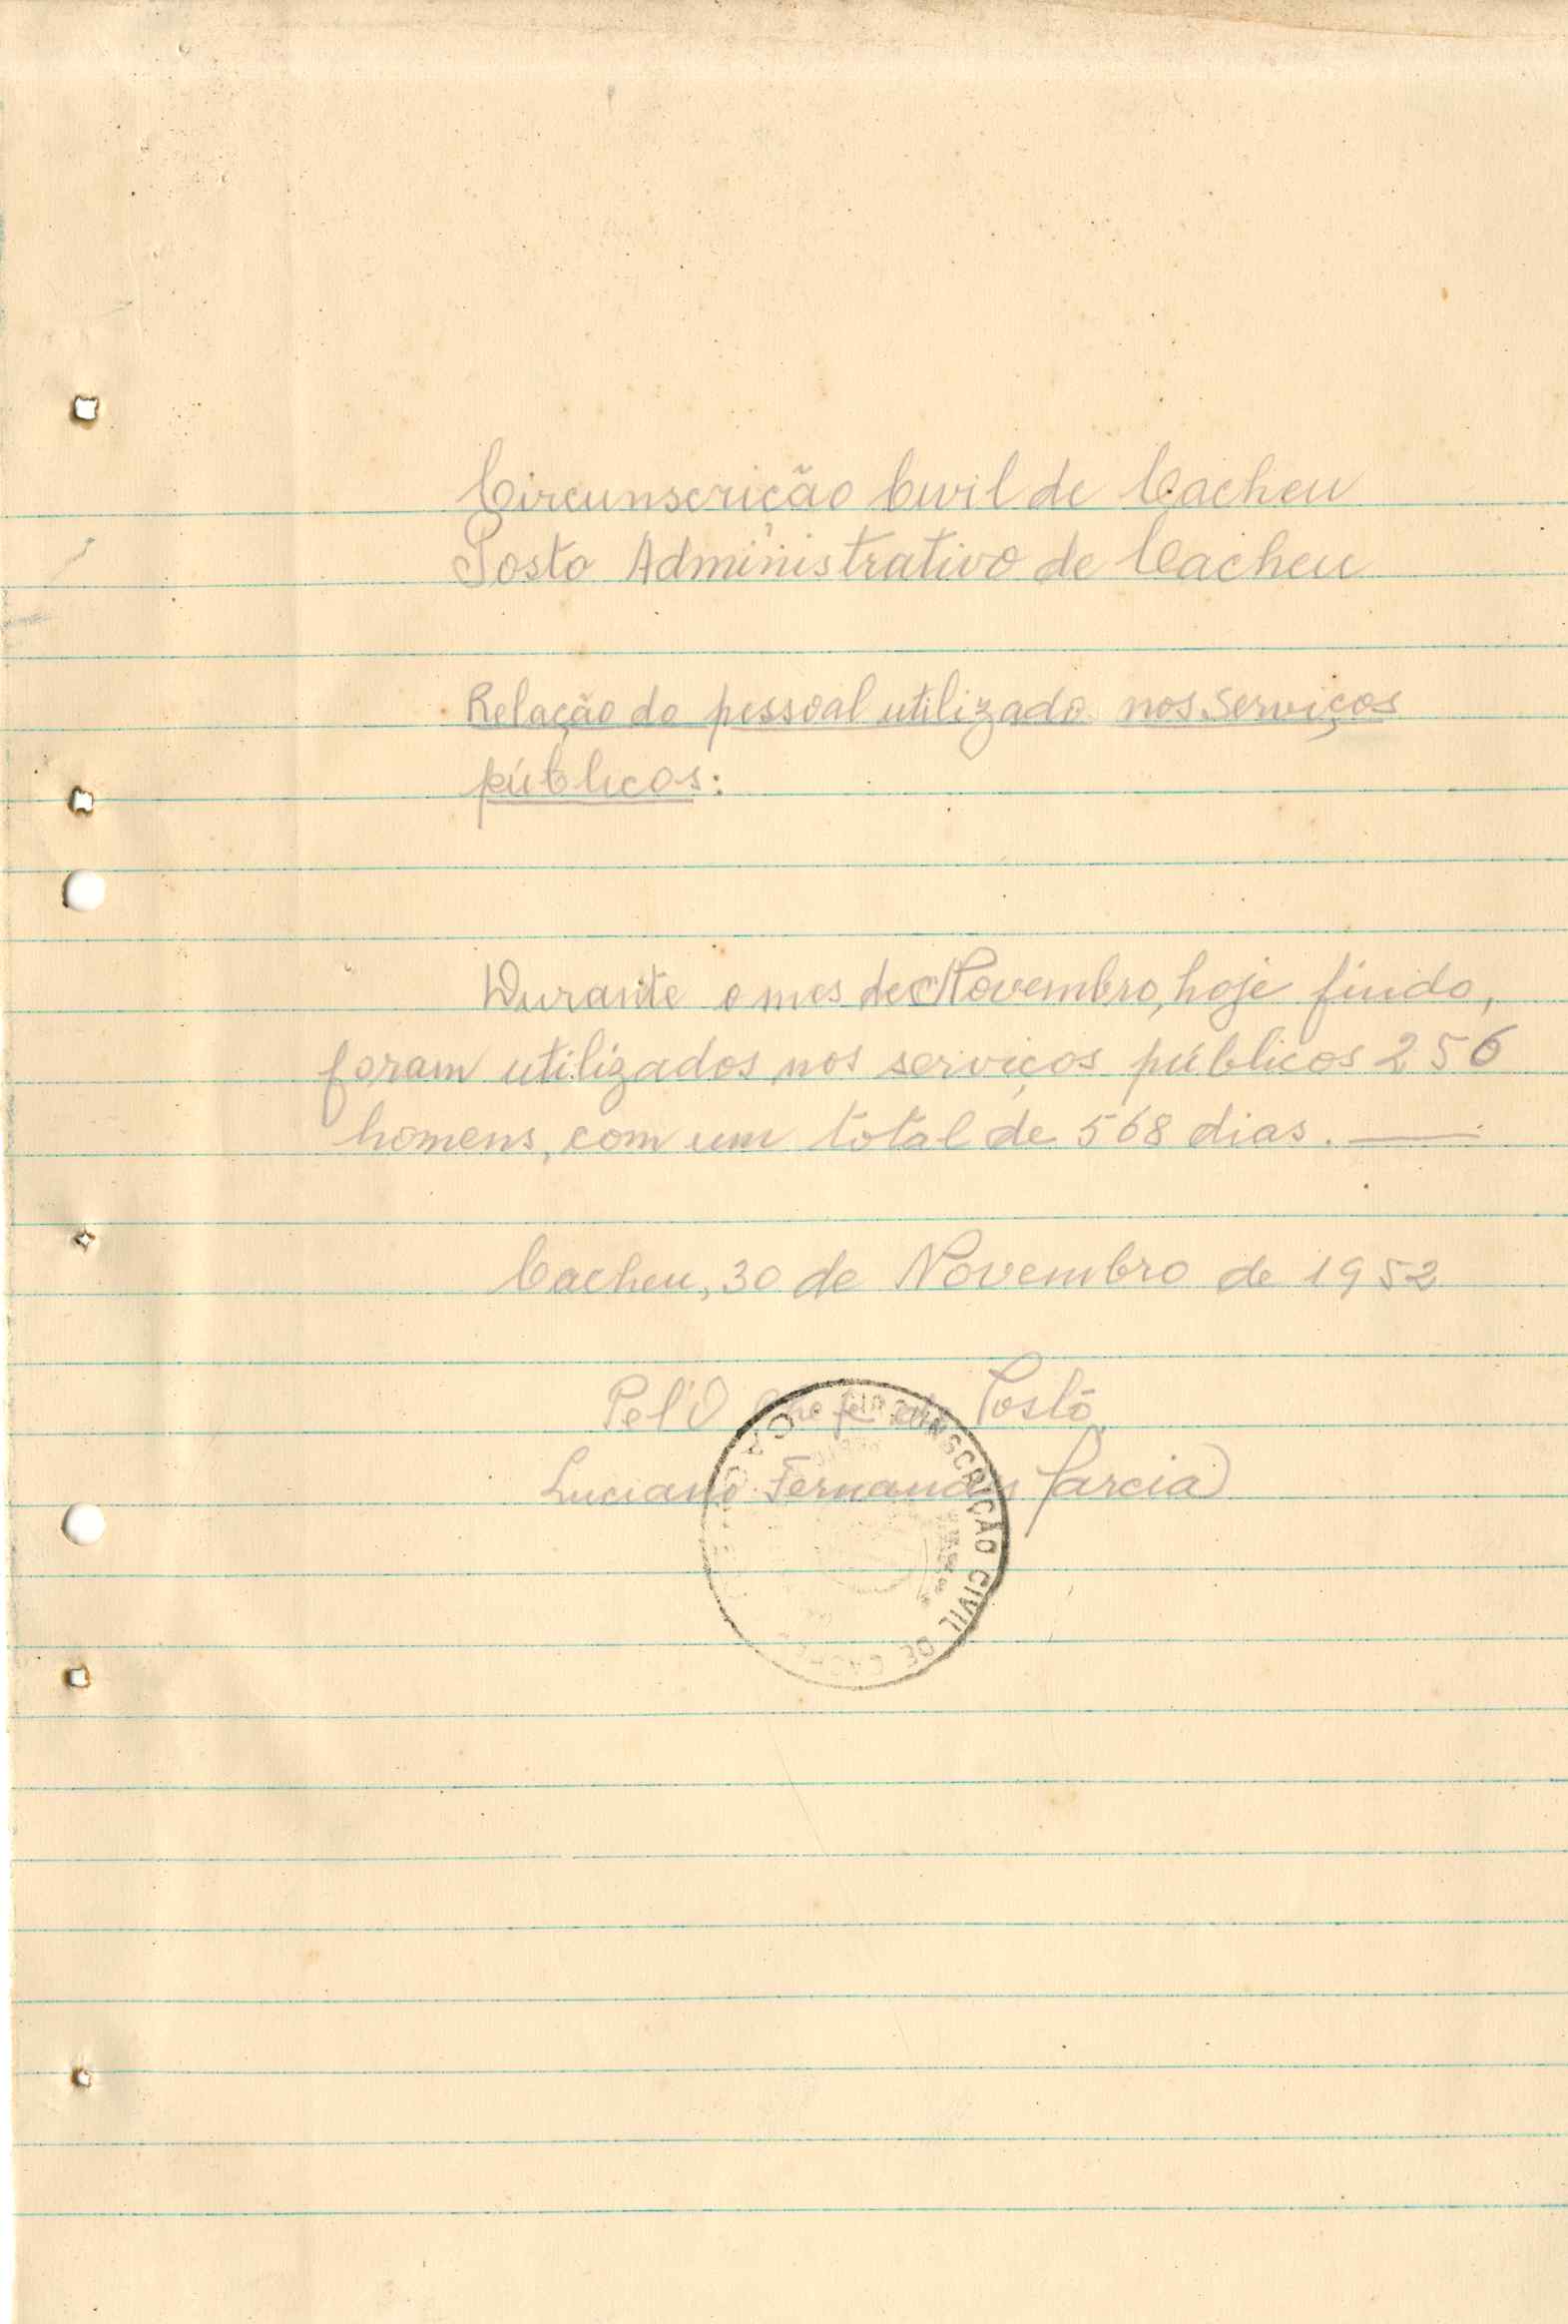 Circunscrição Civil de Cacheu
Posto Administrativo de Cacheu
Relação do pessoal utilizado nos serviços
públicos:
Durante o mes de Novembro, hoje findo,
foram utilizados nos serviços públicos 256
homens, com um total de 568 dias.
Cacheu, 30 de Novembro de 1952
Pel'O Chefe do Posto
Luciano Fernandes Garcia
CIRCUNSCRIÇÃO CIVIL DE CACHEU